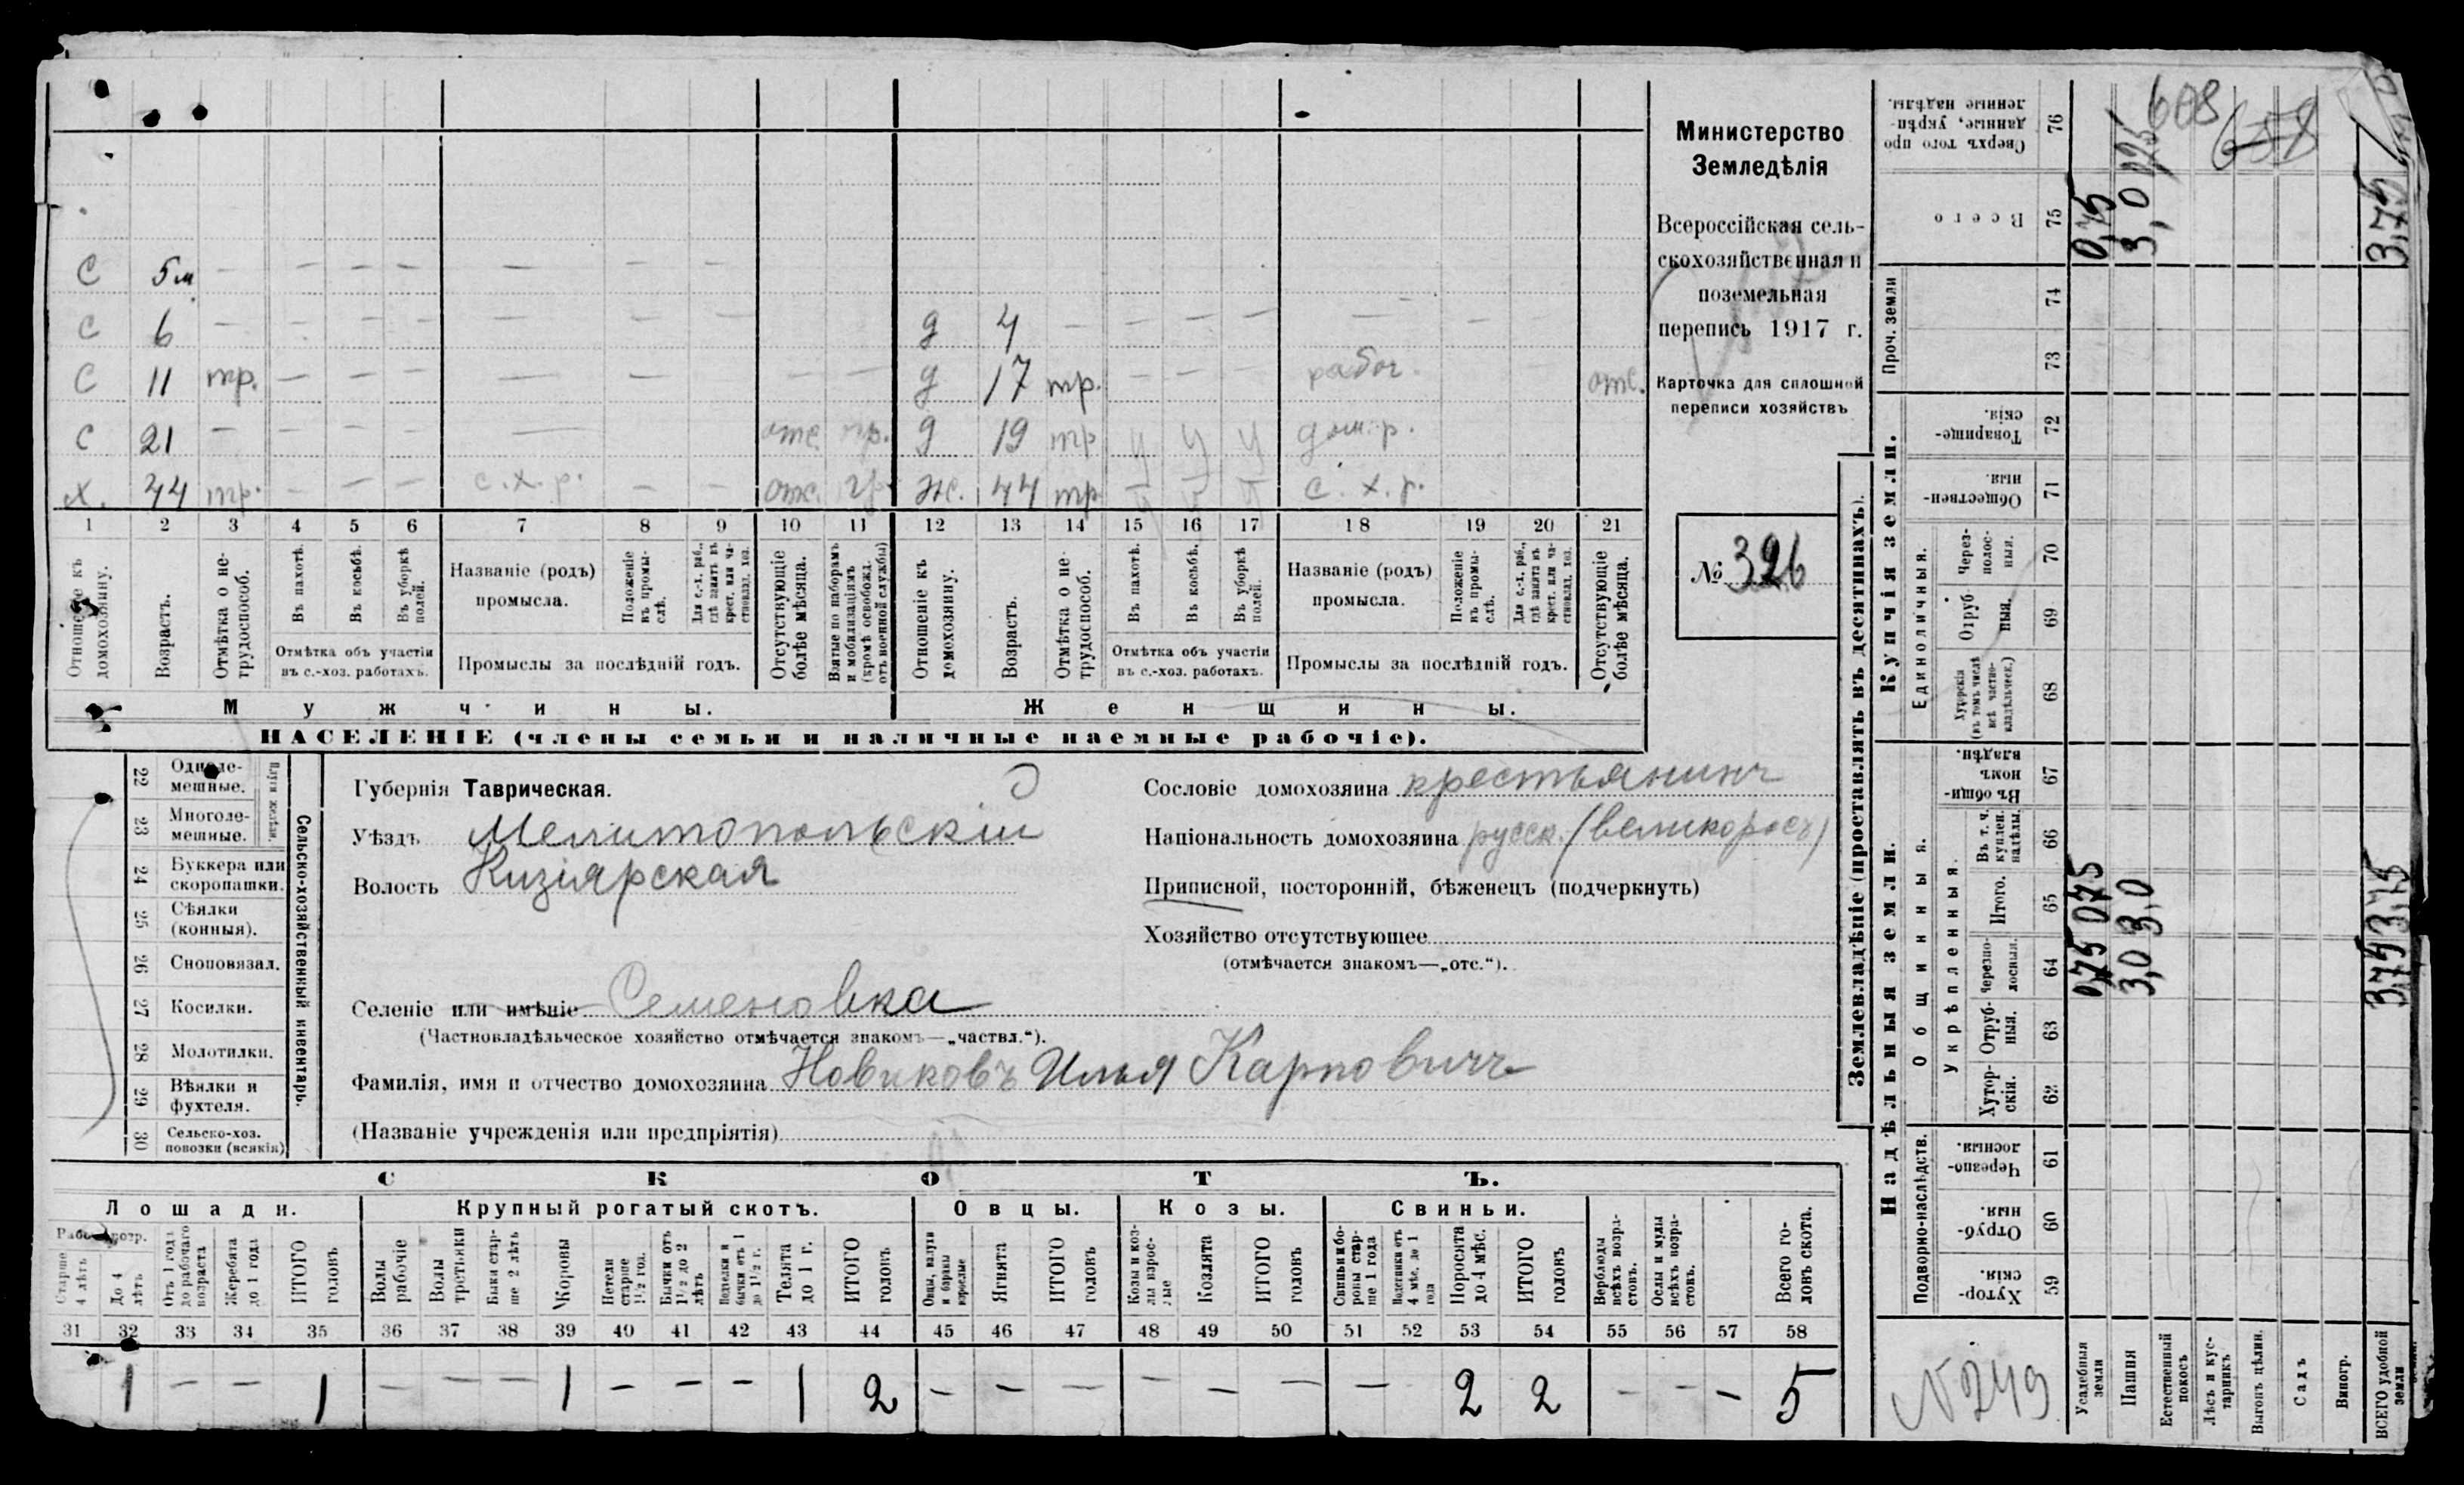 С 5м — — — — — — —
С 6 — — — — — — — — — д 4 — — — — — — —
С 11 тр. — — — — — — — — д 17 тр. — — — рабоч. отс.
С 21 — — — — — отс. пр. д 19 тр у у у дом. р.
х. 44 тр. — — — с. х. р. — — отс. ж. 44 тр с. х. р.
1 2 3 4 5 6 7 8 9 10 11 12 13 14 15 16 17 18 19 20 21
Отношеніе къ домохозяину.
Возрастъ.
Отмѣтка о нетрудоспособ.
Въ пахотѣ.
Въ косьбѣ.
Въ уборкѣ полей.
Отмѣтка объ участіи
въ с.-хоз. работахъ.
Названіе (родъ)
промысла.
Положеніе въ промыслѣ.
Для с.-х. раб., гдѣ занятъ въ крест. или частновлад. хоз.
Промыслы за послѣдній годъ.
Отсутствующіе болѣе мѣсяца.
Взятые по наборамъ и мобилизаціямъ (кромѣ освобожд. отъ военной службы)
Отношеніе къ домохозяину.
Возрастъ.
Отмѣтка о нетрудоспособ.
Въ пахотѣ.
Въ косьбѣ.
Въ уборкѣ полей.
Отмѣтка объ участіи
въ с.-хоз. работахъ.
Названіе (родъ)
промысла.
Положеніе въ промыслѣ.
Для с.-х. раб., гдѣ занята въ крест. или частновлад. хоз.
Промыслы за послѣдній годъ.
Отсутствующіе болѣе мѣсяца.
Мужчины. Женщины.
НАСЕЛЕНІЕ (члены семьи и наличные наемные рабочіе).
Министерство
Земледѣлія
Всероссійская сель-
скохозяйственная и
поземельная
перепись 1917 г.
Карточка для сплошной
переписи хозяйствъ
№ 326
Сельско-хозяйственный инвентарь.
22 Одноле-
мешные.
23 Многоле-
мешные.
24 Буккера или
скоропашки.
25 Сѣялки
(конныя).
26 Сноповязал.
27 Косилки.
28 Молотилки.
29 Вѣялки и
фухтеля.
30 Сельско-хоз.
повозки (всякія)
Губернія Таврическая.
Уѣздъ Мелитопольскій
Волость Кизіярская
Селеніе или имѣніе Семеновка
(Частновладѣльческое хозяйство отмѣчается знакомъ—„частвл.“).
Фамилія, имя и отчество домохозяина Новиковъ Илья Карповичъ
(Названіе учрежденія или предпріятія)
Сословіе домохозяина крестьянинъ
Національность домохозяина русск. (великоросъ)
Приписной, посторонній, бѣженецъ (подчеркнуть)
Хозяйство отсутствующее
(отмѣчается знакомъ—„отс.“).
СКОТЪ.
Лошади. Крупный рогатый скотъ. Овцы. Козы. Свиньи.
Старше 4 лѣтъ
До 4 лѣтъ
Отъ 1 года до рабочаго возраста
Жеребята до 1 года
ИТОГО головъ
Волы рабочіе
Волы третьяки
Быки старше 2 лѣтъ
Коровы
Нетели старше 1½ года.
Бычки отъ 1½ до 2 лѣтъ
Телята до 1 г.
ИТОГО головъ
Ягнята
ИТОГО головъ
Козы и козлы взрослые
Козлята
ИТОГО головъ
Свиньи и боровы старше 1 года
Поросята до 4 мѣс.
ИТОГО головъ
Верблюды всѣхъ возрастовъ.
Ослы и мулы всѣхъ возрастовъ.
Всего головъ скота.
31 32 33 34 35 36 37 38 39 40 41 42 43 44 45 46 47 48 49 50 51 52 53 54 55 56 57 58
1 — — 1 — — — 1 — — — 1 2 — — — — — — — 2 2 — — — 5
Землевладѣніе (проставлять въ десятинахъ).
Надѣльныя земли. Купчія земли. Проч. земли
Подворно-наслѣдств. Общинныя. Единоличныя.
Укрѣпленныя.
59 Хуторскія.
60 Отрубныя.
61 Черезполосныя.
62 Хуторскія.
63 Отрубныя.
64 Черезполосныя.
65 Итого.
66 Въ т. ч. куплен. надѣлы.
67 Въ общинномъ владѣн.
68 Хуторскія (въ томъ числѣ всѣ частновладѣльческ.)
69 Отрубныя.
70 Черезполосныя.
71 Общественныя.
72 Товарищескія.
73
74
75 Всего
76 Сверхъ того проданные, укрѣпленные надѣлы.
Усадебныя земли 0,75 0,75 0,75
Пашня 3,0 3,0 3,0
Естественный покосъ
Лѣсъ и кустарникъ
Выгонъ цѣлин.
Садъ
Виногр.
ВСЕГО удобной земли 3,75 3,75 3,75
608
658
N 249